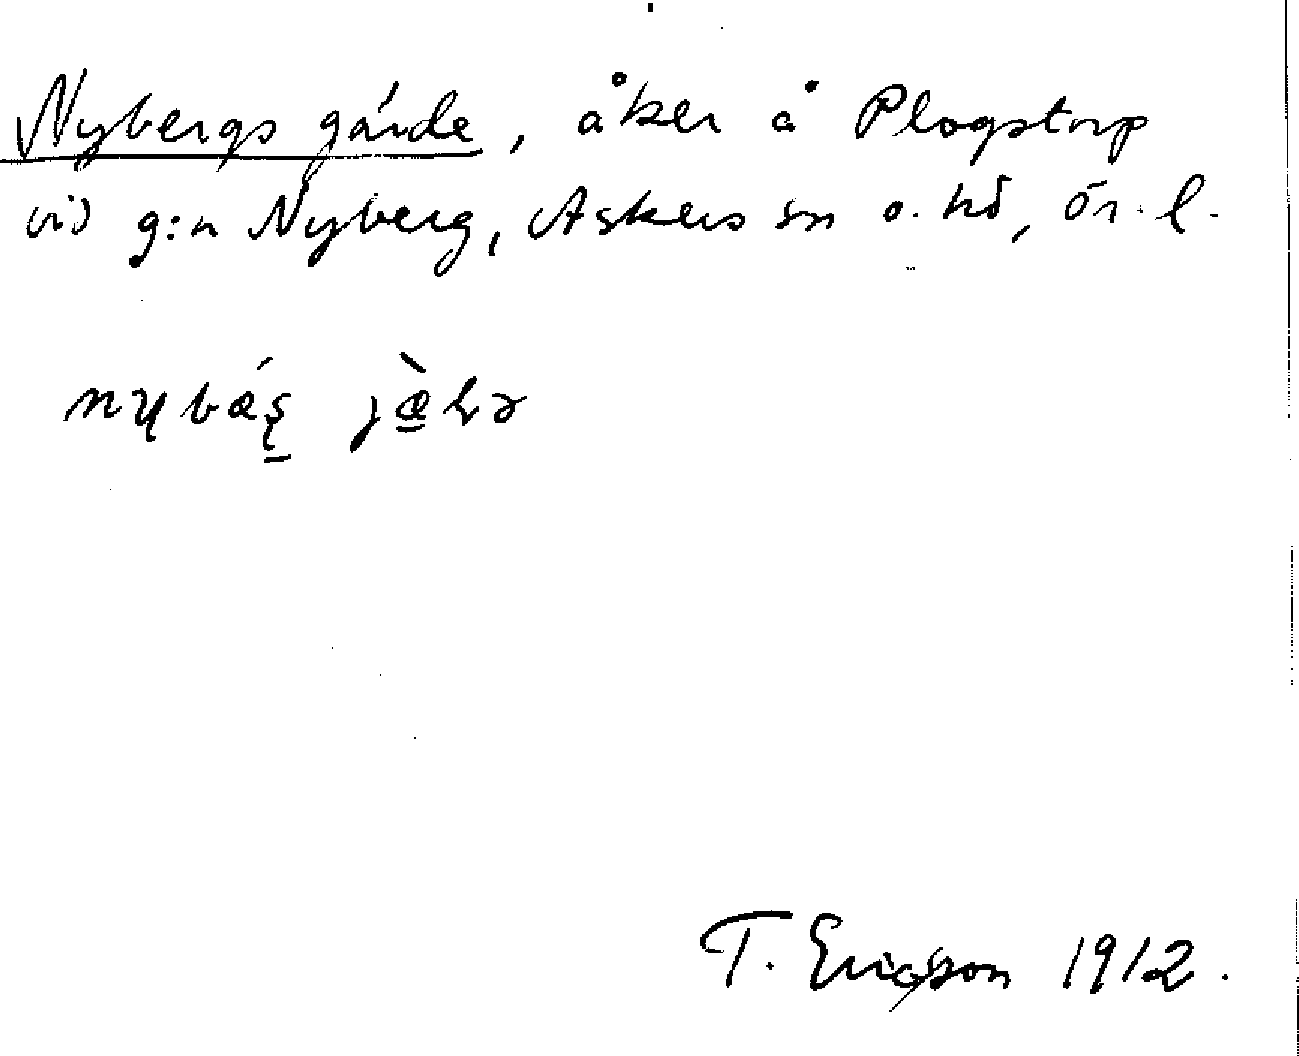 Nybergs gärde, åker å Plogstorp
vid g:n Nyberg, Askers sn o. hd, Ör. l.
T. Ericsson 1912.